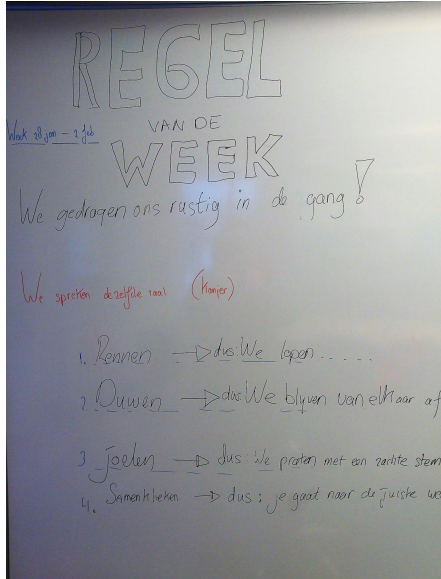 REGEL
VAN DE
Week 28 jan - 2 feb
WEEK
We gedragen ons rustig in de gang!
We spreken dezelfde taal (Kanjer)
1. Rennen → dus: We lopen.....
2. Duwen → dus: We blijven van elkaar af
3 joelen → dus: We praten met een zachte stem
4. Samenklieken → dus: je gaat naar de juiste we